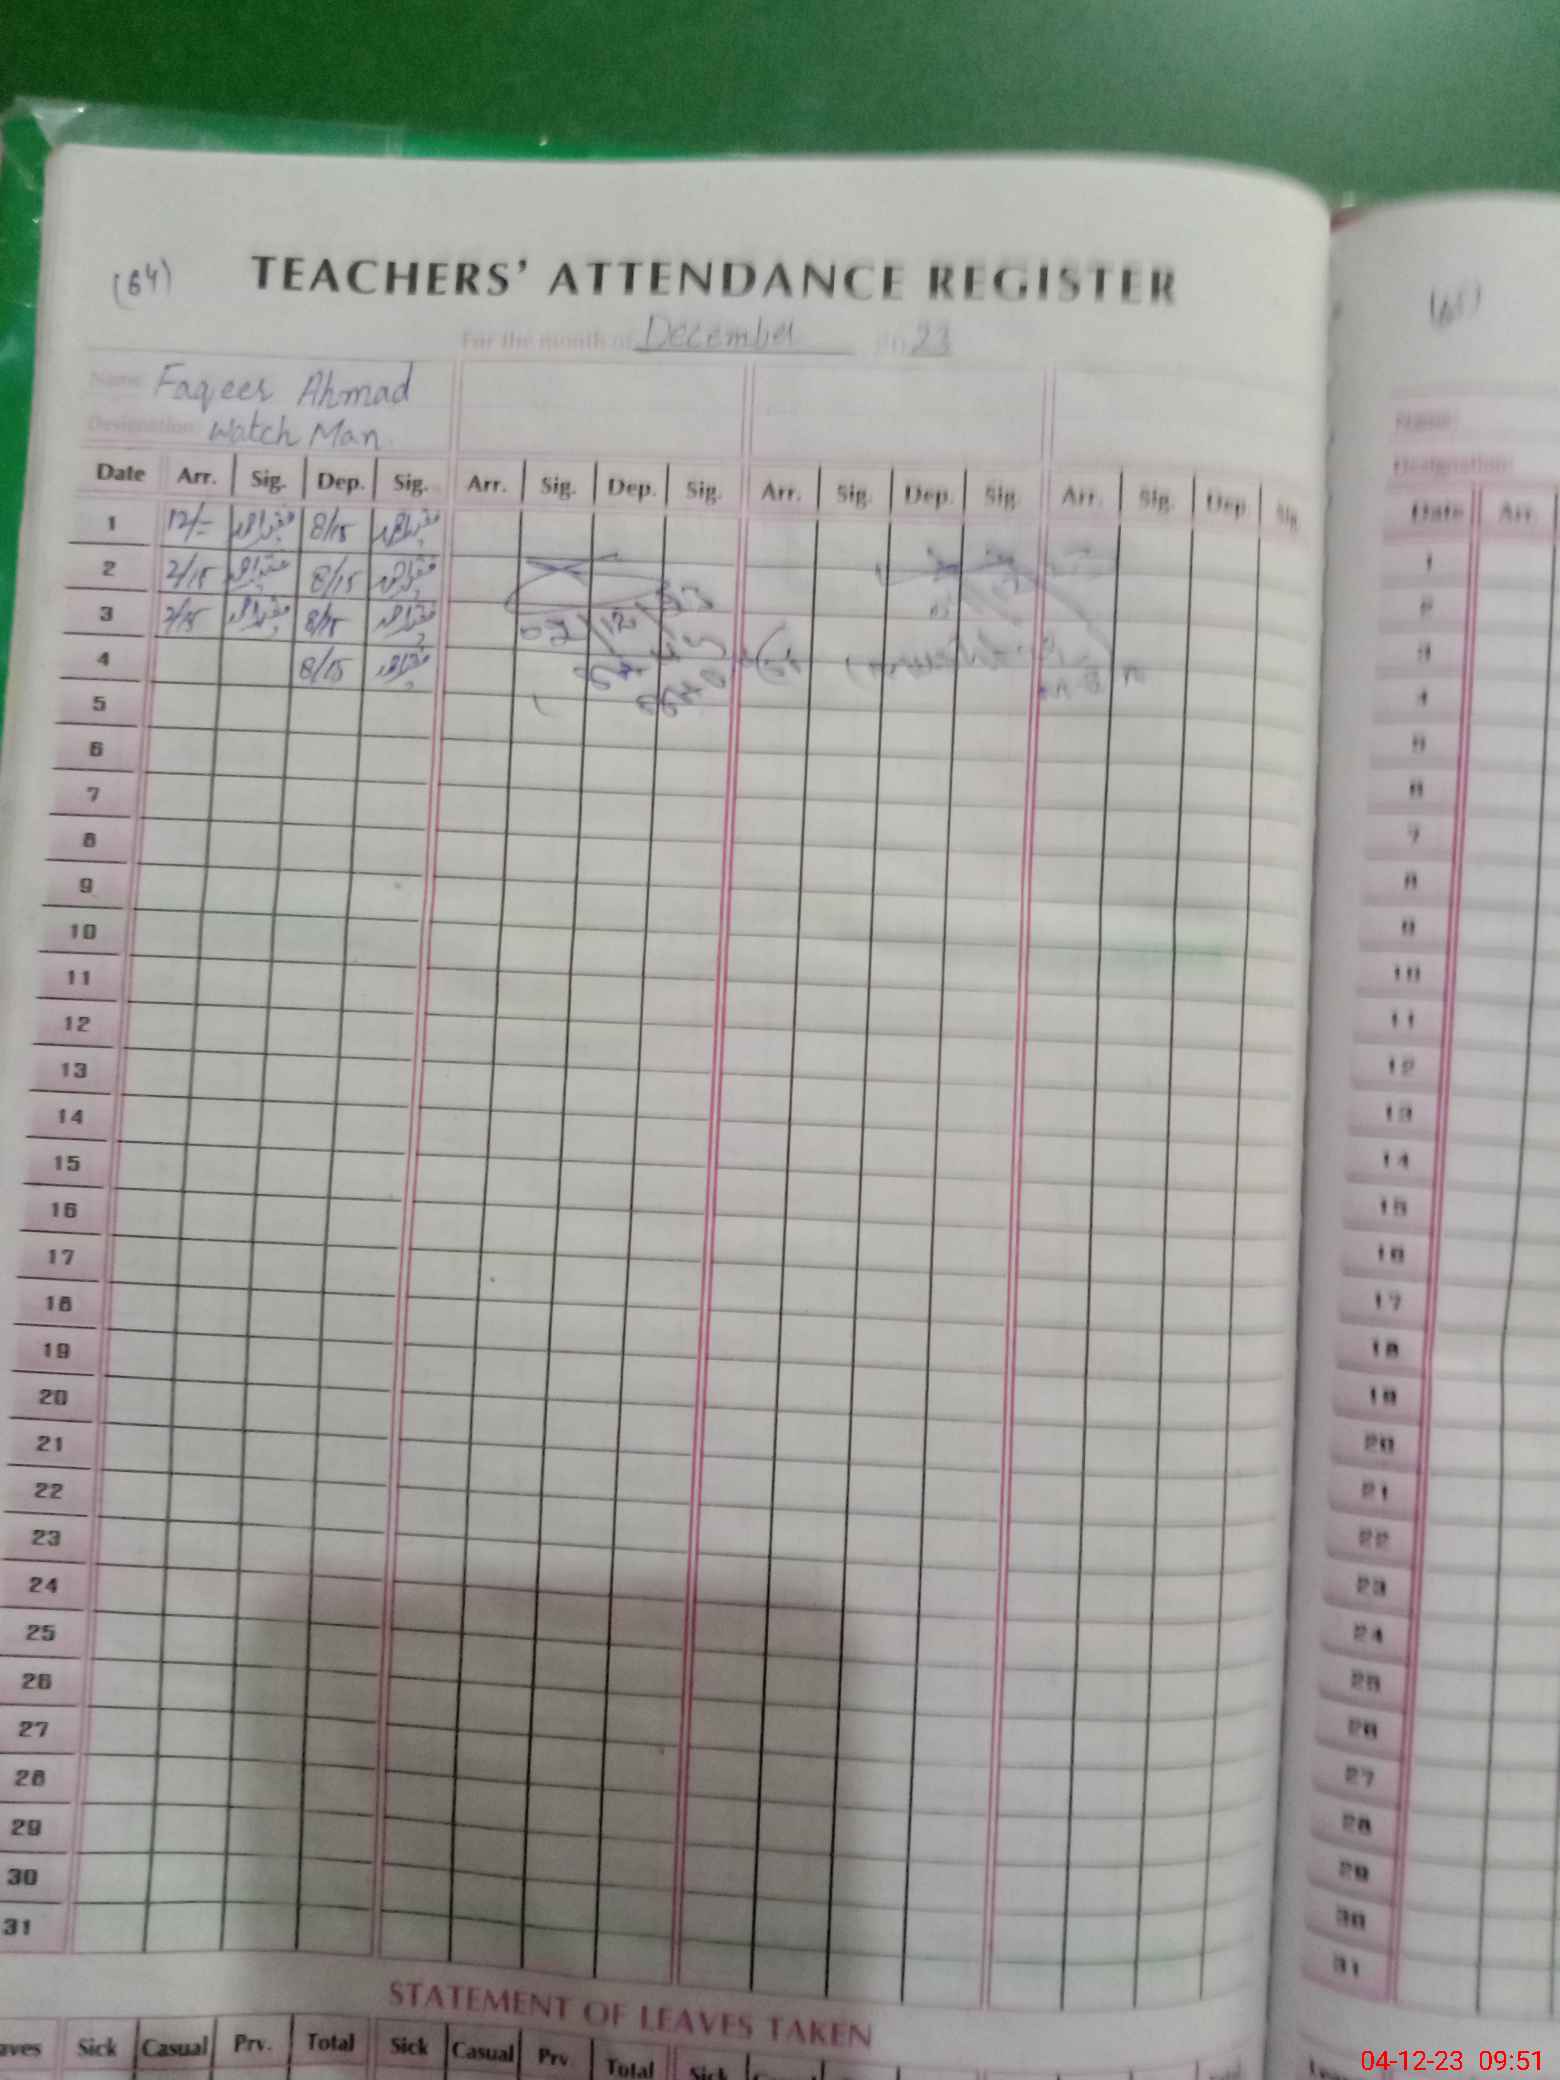 (64)
TEACHERS' ATTENDANCE REGISTER
For the month of December 2023
Name: Faqeer Ahmad
Designation: Watch Man
Date Arr. Sig. Dep. Sig. Arr. Sig. Dep. Sig. Arr. Sig. Dep. Sig. Arr. Sig. Dep. Sig
1 12/= فقیر احمد 8/15 فقیر احمد
2 2/15 فقیر احمد 8/15 فقیر احمد
3 2/15 فقیر احمد 8/15 فقیر احمد
4 8/15 فقیر احمد
5
6
7
8
9
10
11
12
13
14
15
16
17
18
19
20
21
22
23
24
25
26
27
28
29
30
31
STATEMENT OF LEAVES TAKEN
aves Sick Casual Prv. Total Sick Casual Prv. Total Sick
Name:
Designation:
Date Arr.
1
2
3
4
5
6
7
8
9
10
11
12
13
14
15
16
17
18
19
20
21
22
23
24
25
26
27
28
29
30
31
04-12-23 09:51